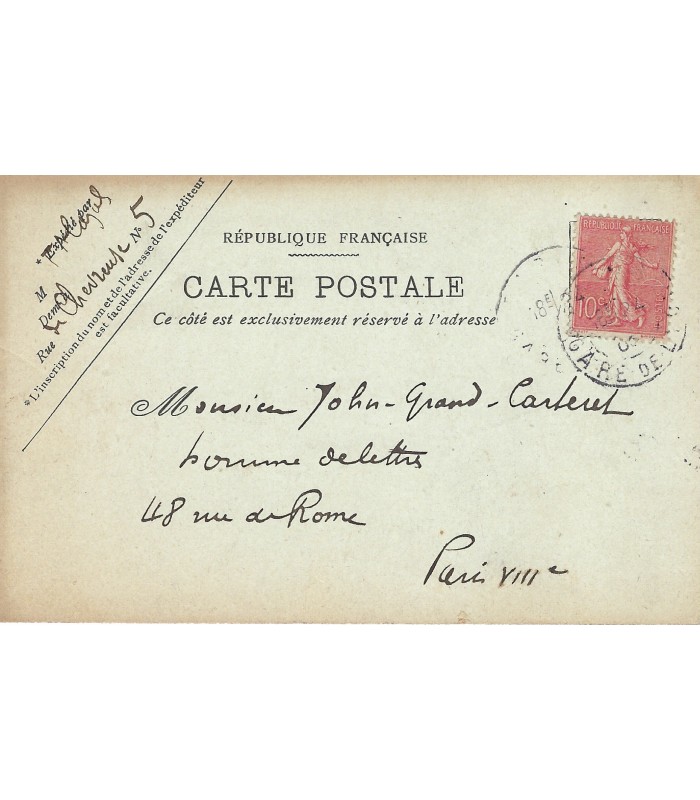 * Expédié par
M Cazals
Demt
Rue de Chevreuse No 5
*L'inscription du nom et de l'adresse de l'expéditeur
est facultative.
RÉPUBLIQUE FRANÇAISE
CARTE POSTALE
Ce côté est exclusivement réservé à l'adresse
RÉPUBLIQUE FRANÇAISE
10c
18E
GARE
GARE DE L'E
Monsieur John-Grand-Carteret
homme de lettres
48 rue de Rome
Paris VIIIe